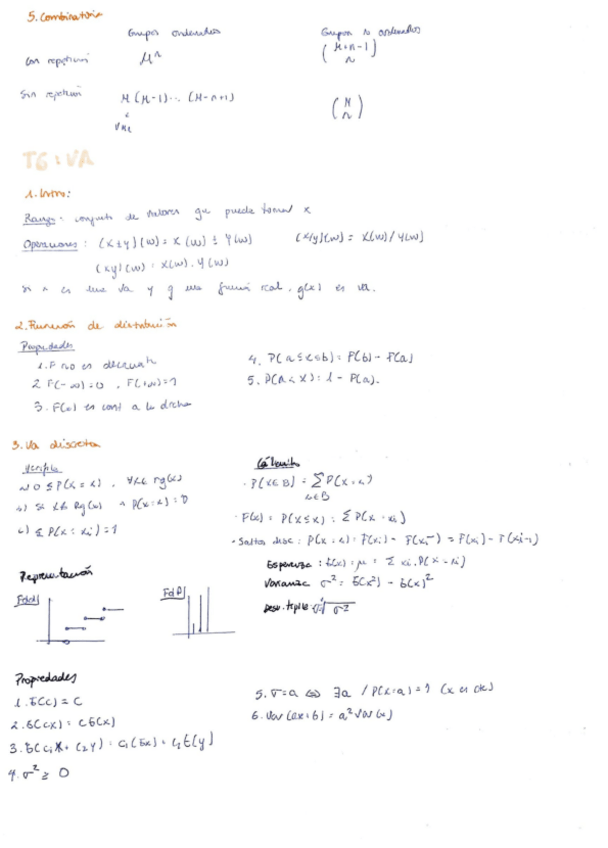 5. Combinatoria
Grupos ordenados
Grupos no ordenados
Con repetición
M^n
(M+n-1 / n)
Sin repetición
M(M-1)... (M-n+1)
(M / n)
T6: VA
1. Intro:
Rango: conjunto de valores que puede tomar X
Operaciones: (X±Y)(w) = X(w) ± Y(w)
(X/Y)(w) = X(w)/Y(w)
(XY)(w) = X(w).Y(w)
si x es una va y g una función real, g(x) es va.
2. Función de distribución
Propiedades
1. F no es decreciente
2. F(-∞)=0, F(+∞)=1
3. F(x) es cont a la derecha
4. P(a≤x≤b) = F(b) - F(a)
5. P(a<X) = 1 - F(a).
3. Va discreta
Verifica
0 ≤ P(X=x), ∀x∈ rg(x)
Si x∉ Rg(x) P(X=x)=0
c) Σ P(X=xi)=1
Cálculo
· P(X∈B) = Σ P(X=x)
x∈B
· F(x) = P(X≤x) = Σ P(X=xi)
· Saltos disc: P(X=x) = F(xi) - F(xi⁻) = F(xi) - F(xi-1)
Esperanza: E(x) = μ = Σ xi.P(X=xi)
Varianza σ² = E(x²) - E(x)²
Desv. típica: √σ²
Representación
Propiedades
1. E(c) = C
2. E(cX) = cE(X)
4. σ² ≥ 0
∃a / P(X=a)=1
6. Var(ax+b) = a² Var(x)